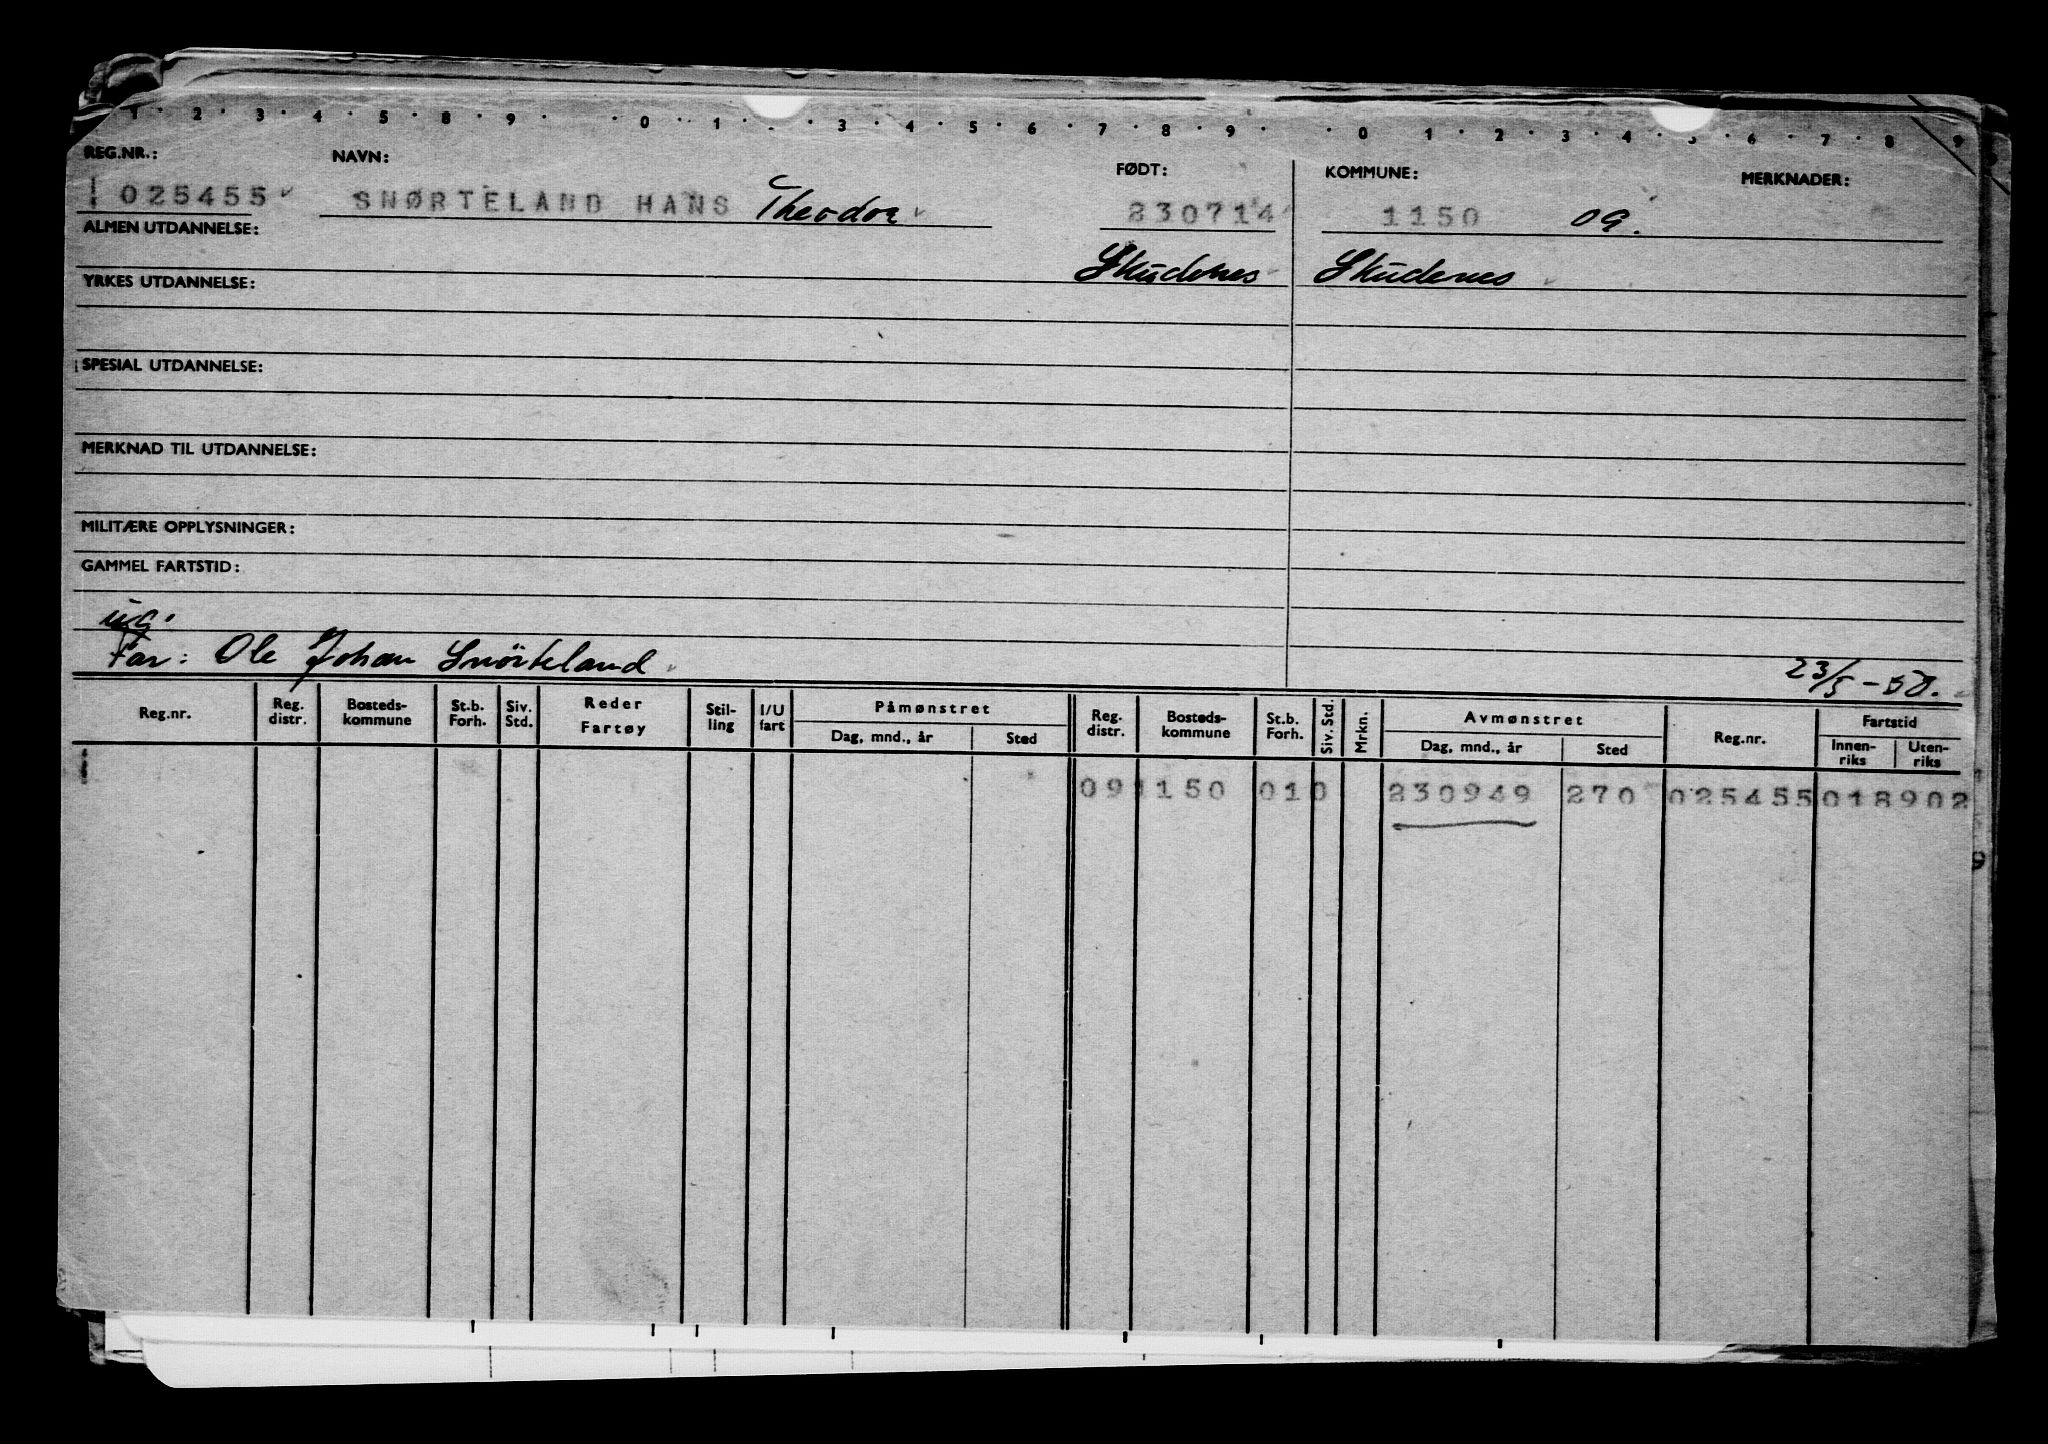 1 · 2 · 3 · 4 · 5 · 8 · 9 · 0 · 1 · 3 · 4 · 5 · 6 · 7 · 8 · 9 · · 0 1 · 2 · 3 · 4 · 5 · 6 · 7 · 8 · 9
REG.NR.: NAVN: FØDT: KOMMUNE: MERKNADER:
025455 SNØRTELAND HANS Theodor 230714 1150 09.
ALMEN UTDANNELSE:
Skudenes Skudenes
YRKES UTDANNELSE:
SPESIAL UTDANNELSE:
MERKNAD TIL UTDANNELSE:
MILITÆRE OPPLYSNINGER:
GAMMEL FARTSTID:
ug.
Far: Ole Johan Snørteland 23/5-50.
Reg.nr. Reg. distr. Bosteds-kommune St.b. Forh. Siv. Std. Reder Fartøy Stil-ling I/U fart Påmønstret Dag, mnd., år Sted Reg. distr. Bosteds-kommune St.b. Forh. Siv. Std. Mrkn. Avmønstret Dag, mnd., år Sted Reg.nr. Fartstid Innen-riks Uten-riks
09 1150 010 230949 270 025455 018902